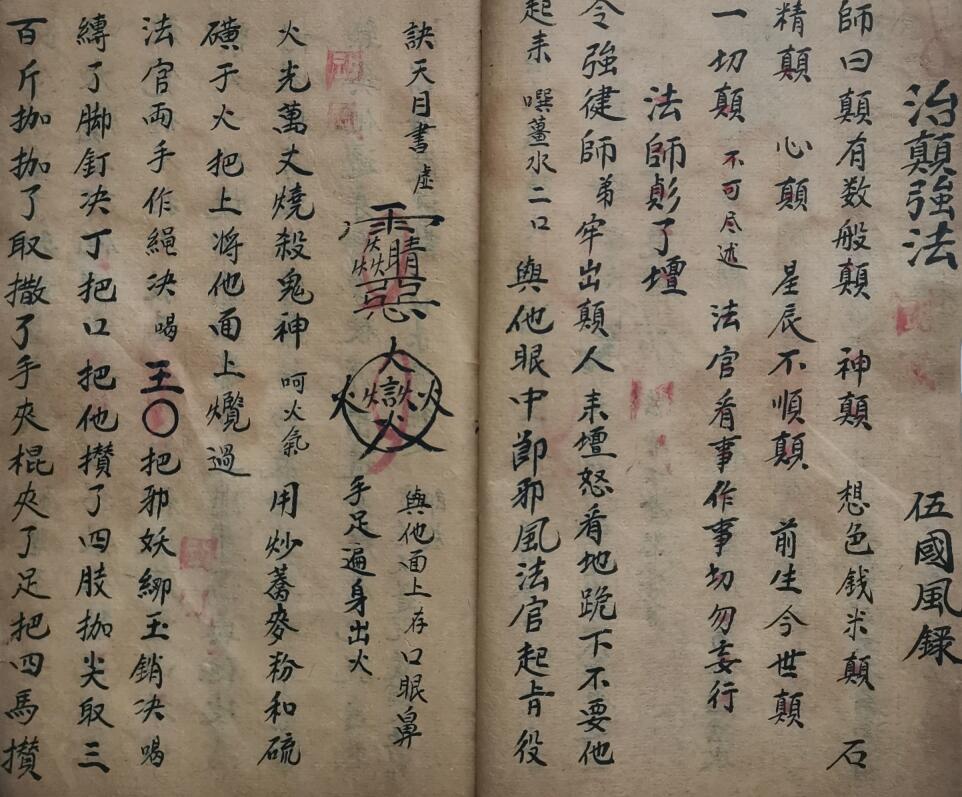 治顛強法　伍國風録
師曰顛有数般顛　神顛　想色銭米顛　石
精顛　心顛　星辰不順顛　前生今世顛
一切顛　不可尽述　法官看事作事切勿妄行
法師彭了壇
令強徤師弟牢出顛人耒壇怒看地跪下不要他
起耒　噀薑水二口　與他眼中即邪風法官起肯役
訣天目書虛
與他面上存口眼鼻
手足遍身出火
火光萬丈燒殺鬼神　呵火氣　用炒蕎麥粉和硫
磺于火把上將他面上爁過
法官両手作繩决　喝　王〇把邪妖綁玉銷决　喝
縛了脚釘决丁把口把他攢了四肢拁尖取三
百斤拁拁了取撒了手夾棍夾了足把四馬攢